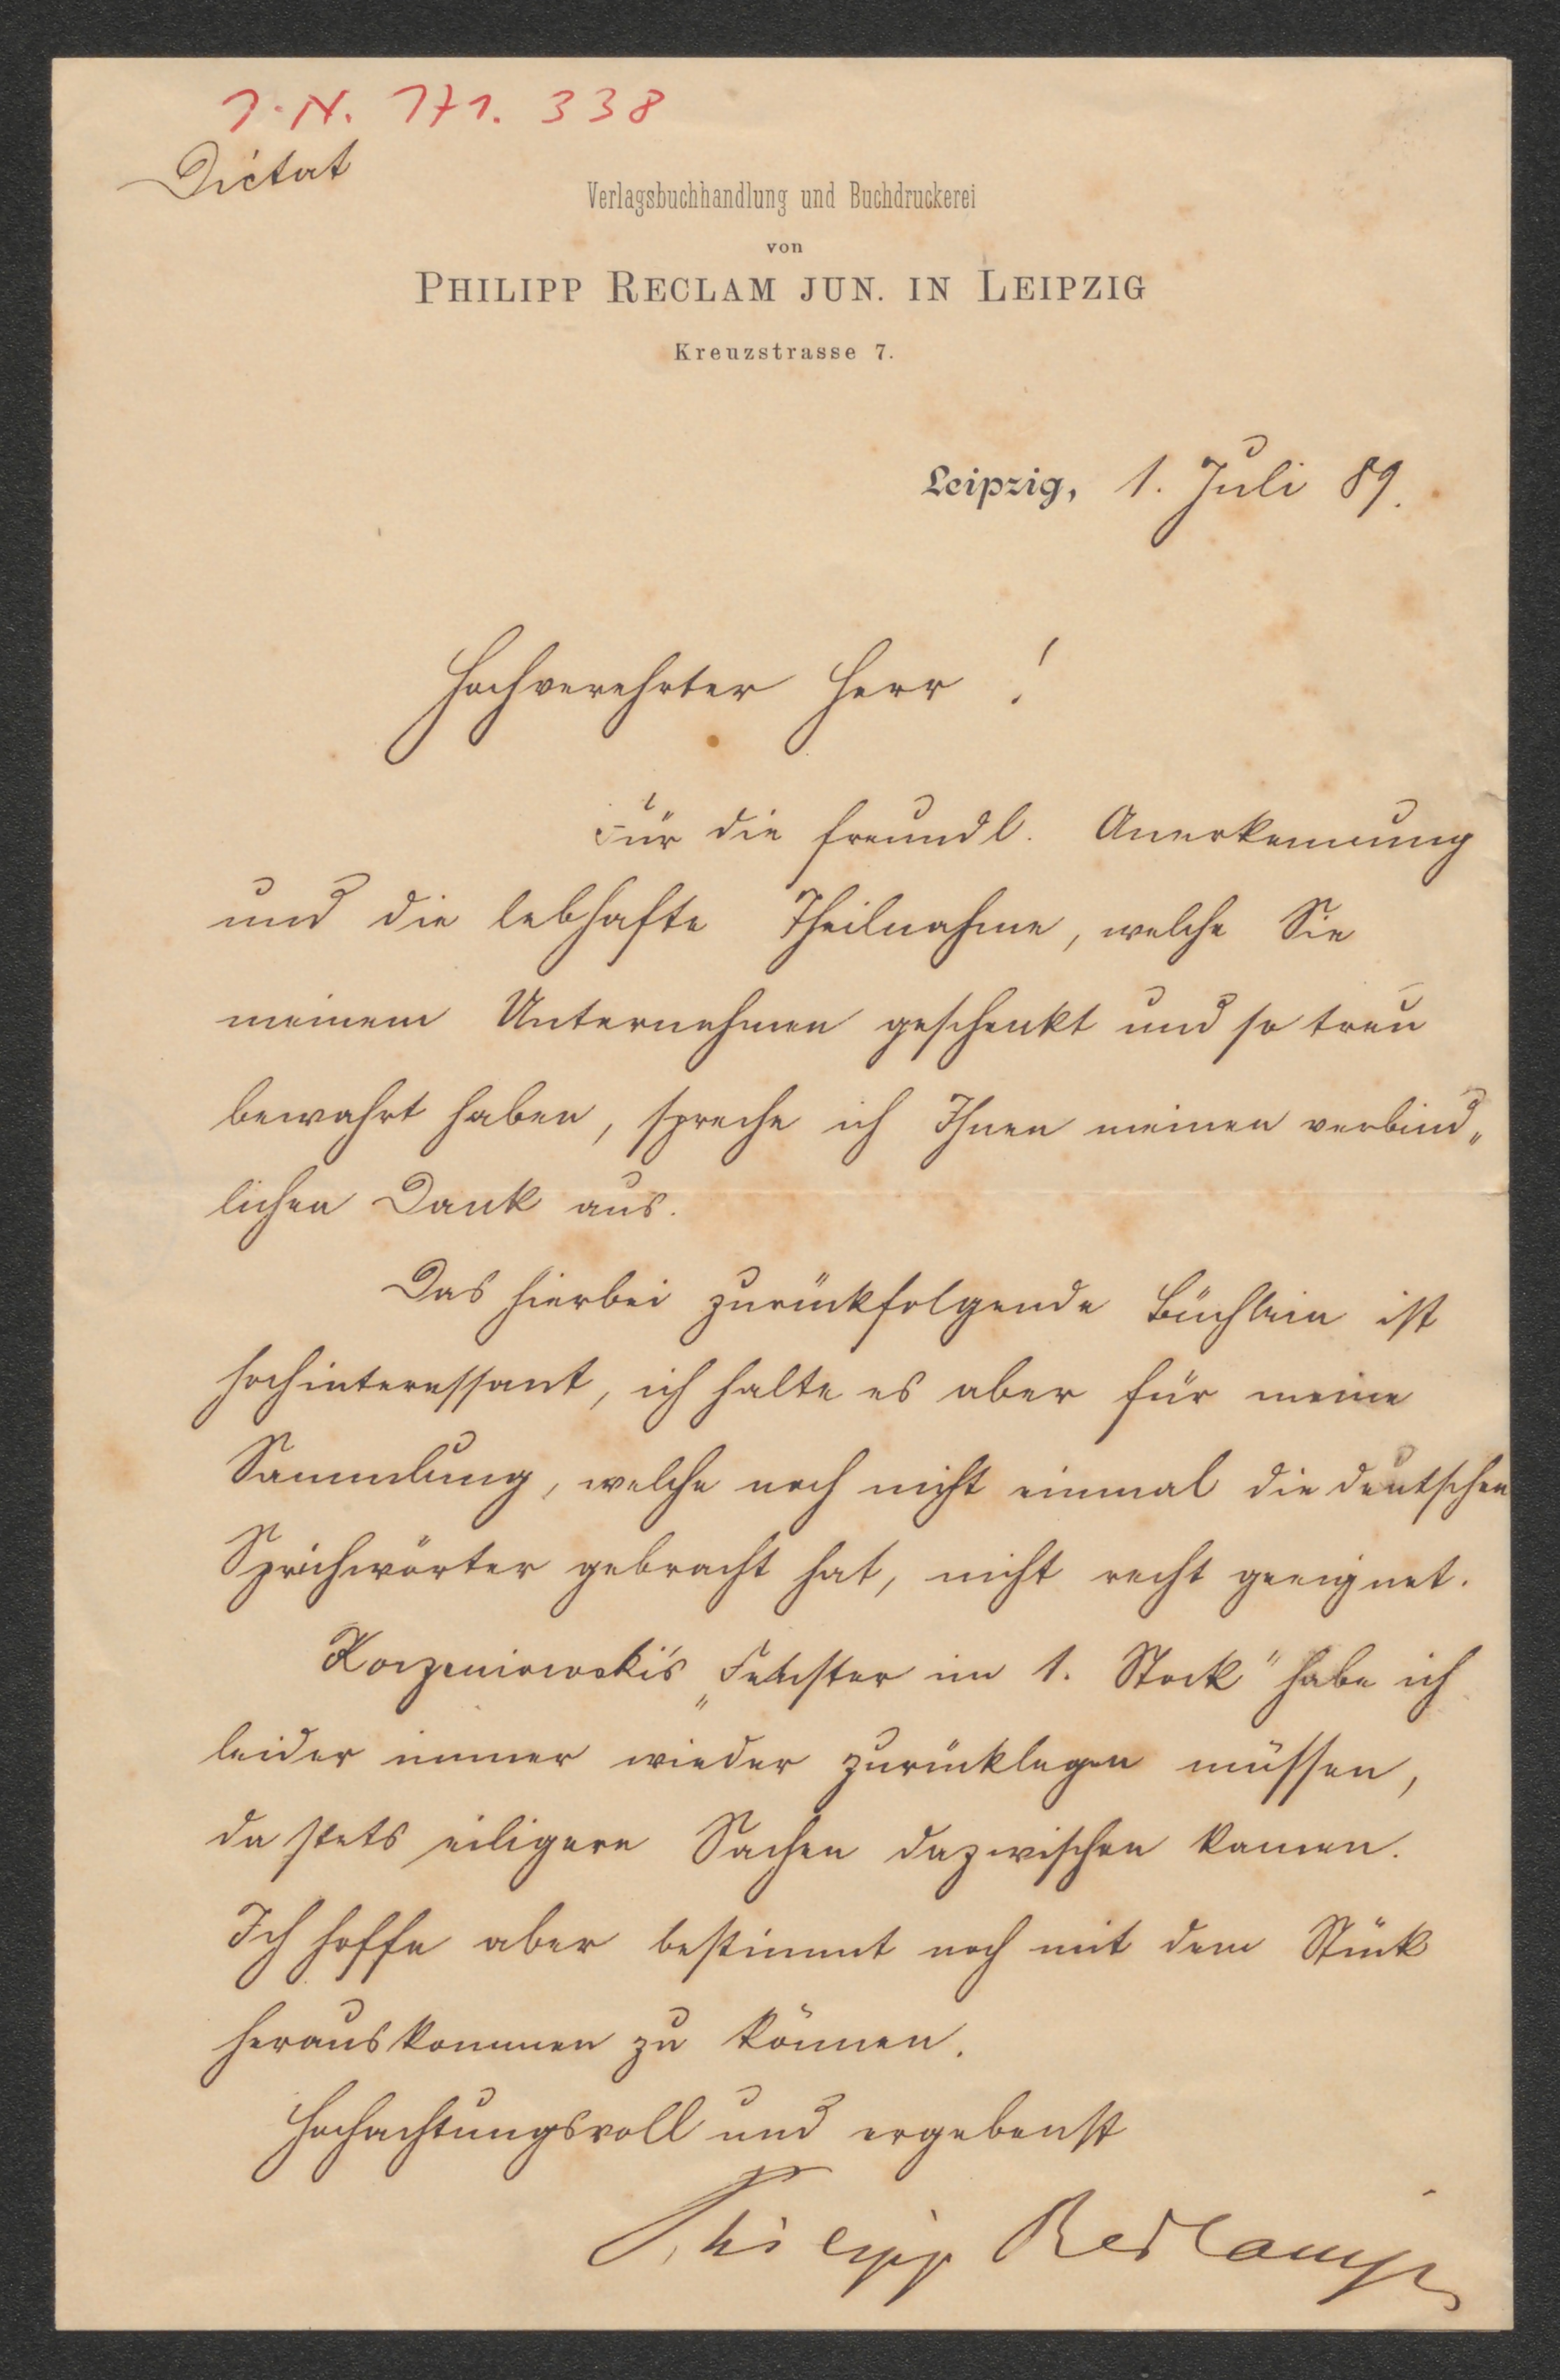 J. N. 171. 338
Dictat
Verlagsbuchhandlung und Buchdruckerei
von
PHILIPP RECLAM JUN. IN LEIPZIG
Kreuzstrasse 7.
Leipzig, 1. Juli 89.
Hochverehrter Herr!
Für die freundl. Anerkennung
und die lebhafte Theilnahme, welche Sie
meinem Unternehmen geschenkt und so treu
bewahrt haben, spreche ich Ihnen meinen verbind„
lichen Dank aus.
Das hierbei zurückfolgende Büchlein ist
hochinteressant, ich halte es aber für meine
Sammlung, welche noch nicht einmal die deutschen
Sprichwörter gebracht hat, nicht recht geeignet.
Korzeniowski's „Fenster im 1. Stock" habe ich
leider immer wieder zurücklegen müssen,
da stets eiligere Sachen dazwischen kamen.
Ich hoffe aber bestimmt noch mit dem Stück
herauskommen zu können.
Hochachtungsvoll und ergebenst
Philipp Reclam jr